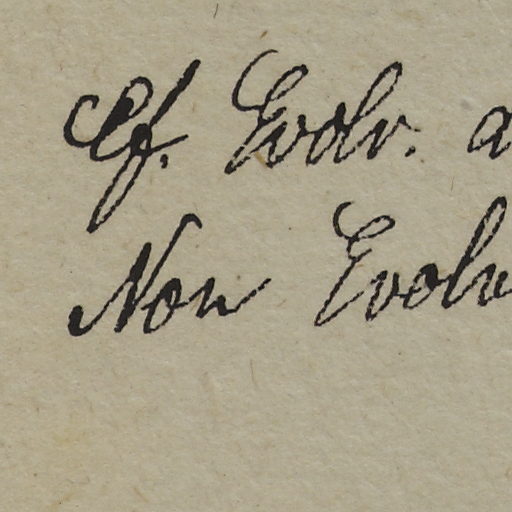 Cf. Evolv. a
Non Evolv